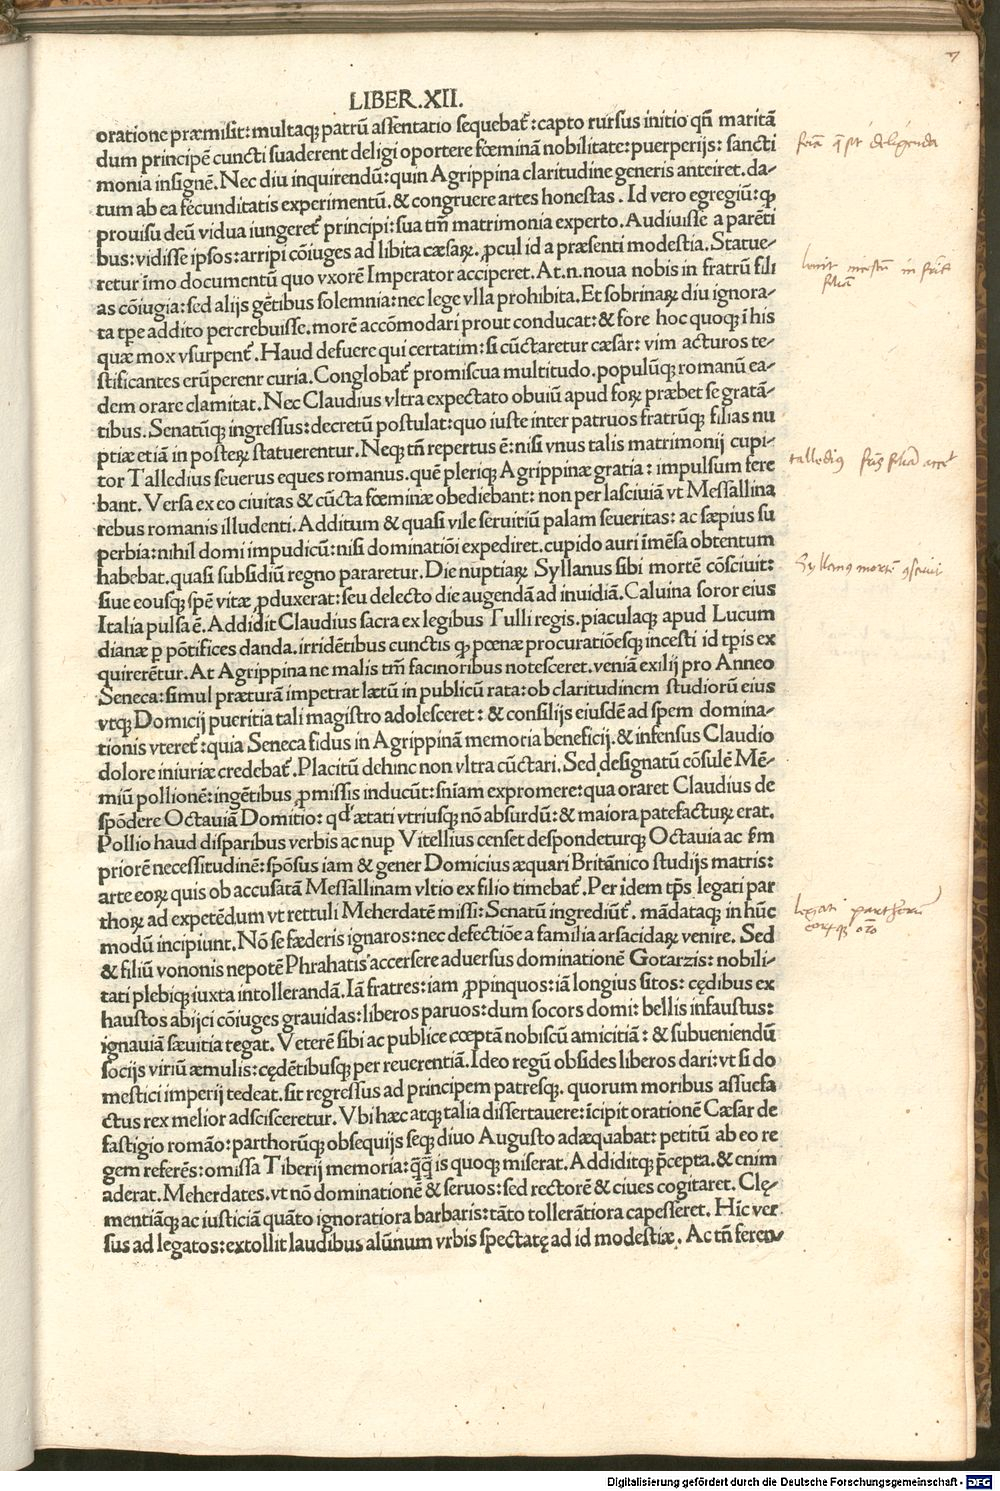 LIBER.XII.
oratione præmisit: multaqꝫ patrũ assentatio sequebat᷑: capto rursus initio qñ maritã
dum principẽ cuncti suaderent deligi oportere fœminã nobilitate: puerperijs: sancti
monia insignẽ. Nec diu inquirendũ: quin Agrippina claritudine generis anteiret. da-
tum ab ea fecunditatis experimentũ. & congruere artes honestas. Id vero egregiũ: qꝫ
prouisu deũ vidua iungeret᷑ principi: sua tm̃ matrimonia experto. Audiuisse a parẽti
bus: vidisse ipsos: arripi cõiuges ad libita cæsarꝝ. ꝓcul id a præsenti modestia. Statue-
retur imo documentũ quo vxorẽ Imperator acciperet. At.n. noua nobis in fratrũ fili
as cõiugia: sed alijs gẽtibus solemnia: nec lege vlla prohibita. Et sobrinarꝝ diu ignora-
ta tp̃e addito percrebuisse. morẽ accõmodari prout conducat: & fore hoc quoqꝫ ĩ his
quæ mox vsurpent᷑. Haud defuere qui certatim: si cũctaretur cæsar: vim acturos te-
stificantes erũperenr curia. Conglobat᷑ promiscua multitudo. populũqꝫ romanũ ea-
dem orare clamitat. Nec Claudius vltra expectato obuiũ apud forꝝ præbet se gratã-
tibus. Senatũqꝫ ingressus: decretũ postulat: quo iuste inter patruos fratrũqꝫ filias nu
ptiæ etiã in posterꝝ statuerentur. Neqꝫ tñ repertus ẽ: nisi vnus talis matrimonij cupi-
tor Talledius seuerus eques romanus. quẽ pleriqꝫ Agrippinæ gratia: impulsum fere
bant. Versa ex eo ciuitas & cũcta fœminæ obediebant: non per lasciuiã vt Messallina
rebus romanis illudenti. Additum & quasi vile seruitiũ palam seueritas: ac sæpius su
perbia: nihil domi impudicũ: nisi dominatiõi expediret. cupido auri ĩmẽsa obtentum
habebat. quasi subsidiũ regno pararetur. Die nuptiarꝝ Syllanus sibi mortẽ cõsciuit:
siue eousqꝫ spẽ vitæ ꝓduxerat: seu delecto die augendã ad inuidiã. Caluina soror eius
Italia pulsa ẽ. Addidit Claudius sacra ex legibus Tulli regis. piaculaqꝫ apud Lucum
dianæ ꝑ põtifices danda. irridẽtibus cunctis qꝫ pœnæ procuratiõesqꝫ incesti id tp̃is ex
quirerẽtur. At Agrippina ne malis tm̃ facinoribus notesceret. veniã exilij pro Anneo
Seneca: simul præturã impetrat lætũ in publicũ rata: ob claritudinem studiorũ eius
vtqꝫ Domicij pueritia tali magistro adolesceret: & consilijs eiusdẽ ad spem domina-
tionis vteret᷑: quia Seneca fidus in Agrippinã memoria beneficij. & infensus Claudio
dolore iniuriæ credebat᷑. Placitũ dehinc non vltra cũctari. Sed designatũ cõsulẽ Mẽ-
miũ pollionẽ: ingẽtibus ꝓmissis inducũt: sñiam expromere: qua oraret Claudius de
spõdere Octauiã Domitio: qd' ætati vtriusqꝫ nõ absurdũ: & maiora patefacturꝝ erat.
Pollio haud disparibus verbis ac nuꝑ Vitellius censet despondeturqꝫ Octauia ac ẜm
priorẽ necessitudinẽ: spõsus iam & gener Domicius æquari Britãnico studijs matris:
arte eorꝝ quis ob accusatã Messallinam vltio ex filio timebat᷑. Per idem tp̃s legati par
thorꝝ ad expetẽdum vt rettuli Meherdatẽ missi: Senatũ ingrediũt᷑. mãdataqꝫ in hũc
modũ incipiunt. Nõ se fæderis ignaros: nec defectiõe a familia arsacidarꝝ venire. Sed
& filiũ vononis nepotẽ Phrahatis accersere aduersus dominationẽ Gotarzis: nobili-
tati plebiqꝫ iuxta intollerandã. Iã fratres: iam ꝓpinquos: iã longius sitos: cędibus ex
haustos abijci cõiuges grauidas: liberos paruos: dum socors domi: bellis infaustus:
ignauiã sæuitia tegat. Veterẽ sibi ac publice cœptã nobiscũ amicitiã: & subueniendũ
socijs viriũ æmulis: cędẽtibusqꝫ per reuerentiã. Ideo regũ obsides liberos dari: vt si do
mestici imperij tedeat. sit regressus ad principem patresqꝫ. quorum moribus assuefa
ctus rex melior adscisceretur. Vbi hæc atqꝫ talia dissertauere: ĩcipit orationẽ Cæsar de
fastigio romão: parthorũqꝫ obsequijs seqꝫ diuo Augusto adæquabat: petitũ ab eo re
gem referẽs: omissa Tiberij memoria: q̃q̃ is quoqꝫ miserat. Addiditqꝫ p̃cepta. & enim
aderat. Meherdates. vt nõ dominationẽ & seruos: sed rectorẽ & ciues cogitaret. Clę-
mentiãqꝫ ac iusticiã quãto ignoratiora barbaris: tãto tollerãtiora capesseret. Hĩc ver
sus ad legatos: extollit laudibus alũnum vrbis spectatę ad id modestiæ. Ac tñ feren-
Syllanus mortẽ ꝯsciuit
legati parthorũ
Digitalisierung gefördert durch die Deutsche Forschungsgemeinschaft - DFG